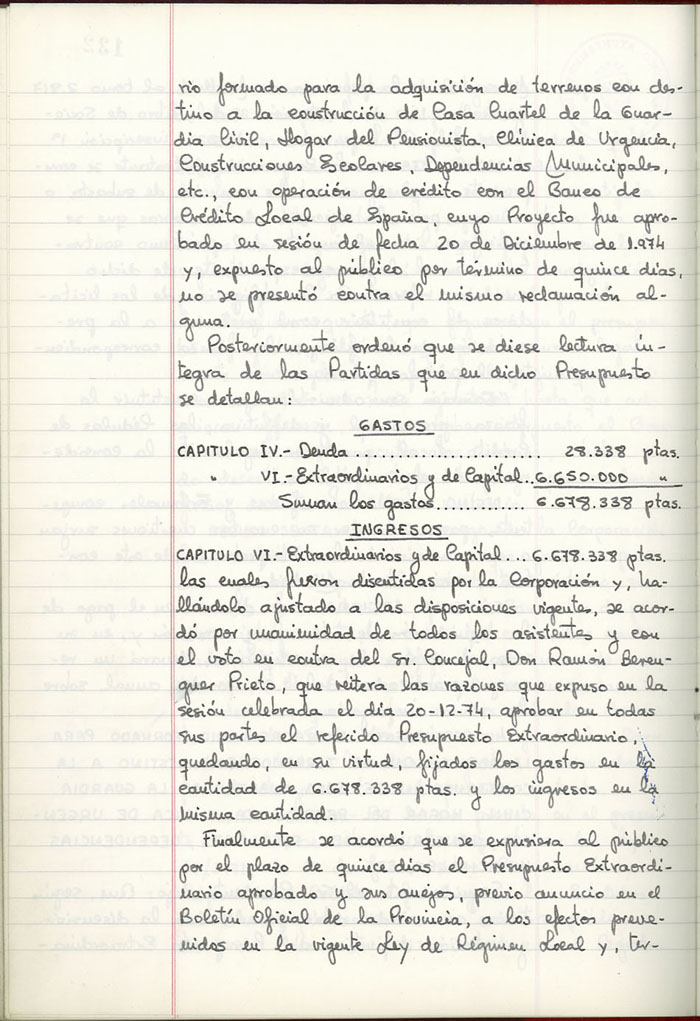 rio formado para la adquisición de terrenos con des-
tino a la construcción de Casa Cuartel de la Guar-
dia Civil, Hogar del Pensionista, Clínica de Urgencia,
Construcciones Escolares, Dependencias Municipales,
etc., con operación de crédito con el Banco de
Crédito Local de España, cuyo Proyecto fue apro-
bado en sesión de fecha 20 de Diciembre de 1.974
y, expuesto al público por término de quince días,
no se presentó contra el mismo reclamación al-
guna.
Posteriormente ordenó que se diese lectura ín-
tegra de las Partidas que en dicho Presupuesto
se detallan:
GASTOS
CAPITULO IV.- Deuda ........................ 28.338 ptas.
" VI.- Extraordinarios y de Capital..6.650.000 "
Suman los gastos............ 6.678.338 ptas.
INGRESOS
CAPITULO VI.- Extraordinarios y de Capital... 6.678.338 ptas.
las cuales fueron discutidas por la Corporación y, ha-
llándolo ajustado a las disposiciones vigentes, se acor-
dó por unanimidad de todos los asistentes y con
el voto en contra del Sr. Concejal, Don Ramón Beren-
guer Prieto, que reitera las razones que expuso en la
sesión celebrada el día 20-12-74, aprobar en todas
sus partes el referido Presupuesto Extraordinario,
quedando, en su virtud, fijados los gastos en la
cantidad de 6.678.338 ptas. y los ingresos en la
misma cantidad.
Finalmente se acordó que se expusiera al público
por el plazo de quince días el Presupuesto Extraordi-
nario aprobado y sus anejos, previo anuncio en el
Boletín Oficial de la Provincia, a los efectos preve-
nidos en la vigente Ley de Régimen Local y, ter-